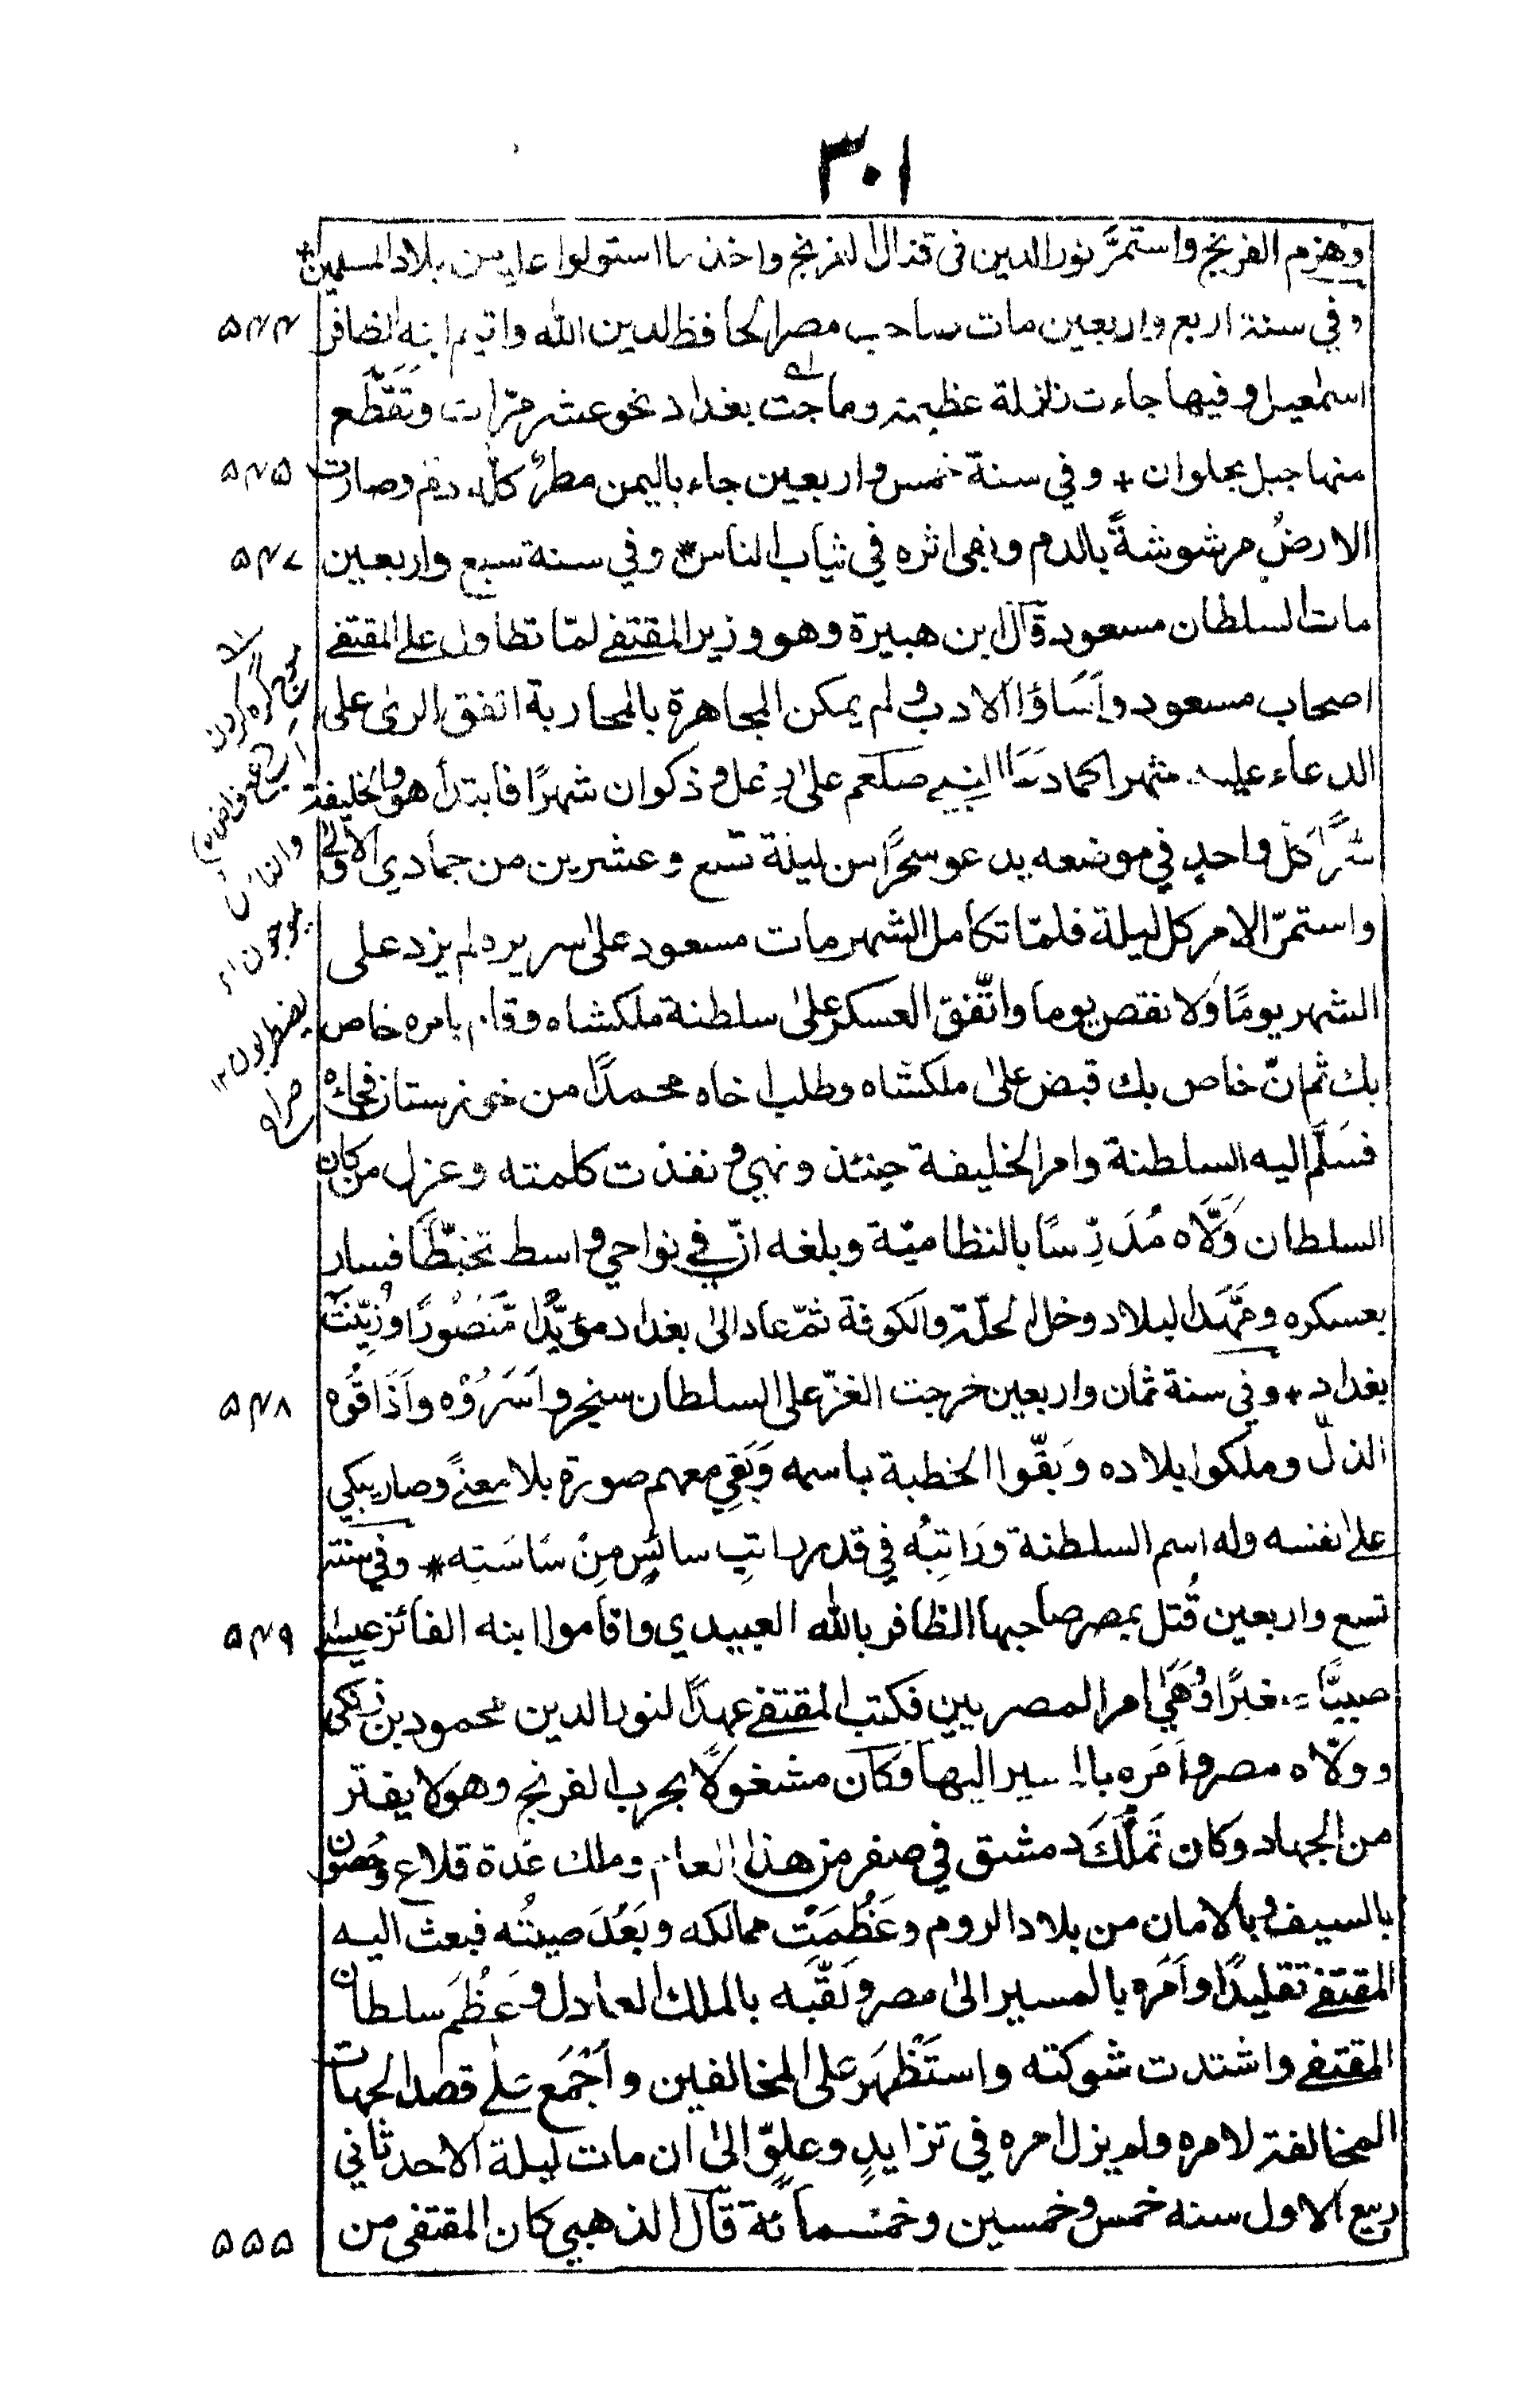 ٣٠١
وهزم الفرنج واستمرَّ نور الدين فى قتال الفرنج واخذ ما استولوا عليه من بلاد المسلمين *
وفي سنة اربع واربعين مات صاحب مصر الحافظ لدين الله واقيم ابنه الظافر ۵۴۴
اسمٰعيل وفيها جاءت زلزلة عظيمة وماجت بغداد نحو عشر مرّات وتَقَطَّع
منها جبل بحلوان + وفي سنة خمس واربعين جاء باليمن مطرٌ كلّه دم وصارت ۵۴۵
الارضُ مرشوشةً بالدم وبقى اثره في ثياب الناس * وفي سنة سبع واربعين ۵۴۷
مات السلطان مسعود قال ابن هبيرة وهو وزير المقتفے لمّا تطاول علے المقتفے
اصحاب مسعود وأَسَاؤا الادب ولم يمكن المجاهرة بالمحاربة اتفق الرىٰ على
الدعاء عليه شهرا كما دَعَا النبيے صلعم علىٰ رِعل وذكوان شهرًا فابتدأ هو والخليفة
سِرًّا كلّ واحدٍ في موضعه يدعو سحرًا من ليلة تسع وعشرين من جمادي الاولىٰ
واستمرّ الامر كل ليلة فلمّا تكامل الشهر مات مسعود علىٰ سريره لم يزد على
الشهر يومًا ولا نقص يوما واتّفق العسكر علىٰ سلطنة ملكشاه وقام بامره خاص
بك ثم انّ خاص بك قبض علىٰ ملكشاه وطلب اخاه محمدًا من خوزستان فجاءه
فسَلَّم اليه السلطنة وامر الخليفة حينئذ ونهي ونفذت كلمته وعزل من كان
السلطان وَلَّاه مُدَرِّسًا بالنظاميّة وبلغه انّ في نواحي واسط تخبّطًا فسار
بعسكره ومَهَّدَ البلاد ودخل الحلّة والكوفة ثمّ عاد الىٰ بغداد مؤيّدًا مَّنْصُورًا وزُيّنت
بغداد + وفي سنة ثمان واربعين خرجت الغزّ على السلطان سنجر وأَسَرُوْه واَذَاقُوه ۵۴۸
الذلّ وملكوا بلاده وبَقّوا الخطبة باسمه وَبَقِي معهم صورة بلا معنًے وصار يبكي
علىٰ نفسه وله اسم السلطنة ورَاتبُه في قدر راتبِ سائسٍ مِنْ سَاسَتِه * وفي سنة
تسع واربعين قُتل بمصر صاحبها الظافر بالله العبيدي واقاموا ابنه الفائز عيسىٰ ۵۴۹
صبيًّا صغيرًا ووَهَيٰ امر المصريين فكتب المقتفے عهدًا لنور الدين محمود بن زنكى
وولّاه مصر وأَمَره بالمسير اليها فكان مشغولًا بحرب الفرنج وهو لا يفتر
من الجهاد وكان تَمَلَّكَ دمشق في صفر من هذا العام وملك عدة قلاع وحُصُون
بالسيف وبالامان من بلاد الروم وعَظُمَتْ ممالكه وبَعُدَ صيتُه فبعث اليه
المقتفے تقليدًا وأَمَره بالمسير الىٰ مصر ولَقَّبه بالملك العادل وعَظُمَ سلطان
المقتفے واشتدت شوكته واستَظْهَر على المخالفين وأَجْمَع علے قصد الجهات
المخالفة لامره ولم يزل امره في تزايدٍ وعلوٍّ الىٰ ان مات ليلة الاحد ثاني
ربيع الاول سنة خمس وخمسين وخمسمائة قال الذهبي كان المقتفى من ۵۵۵